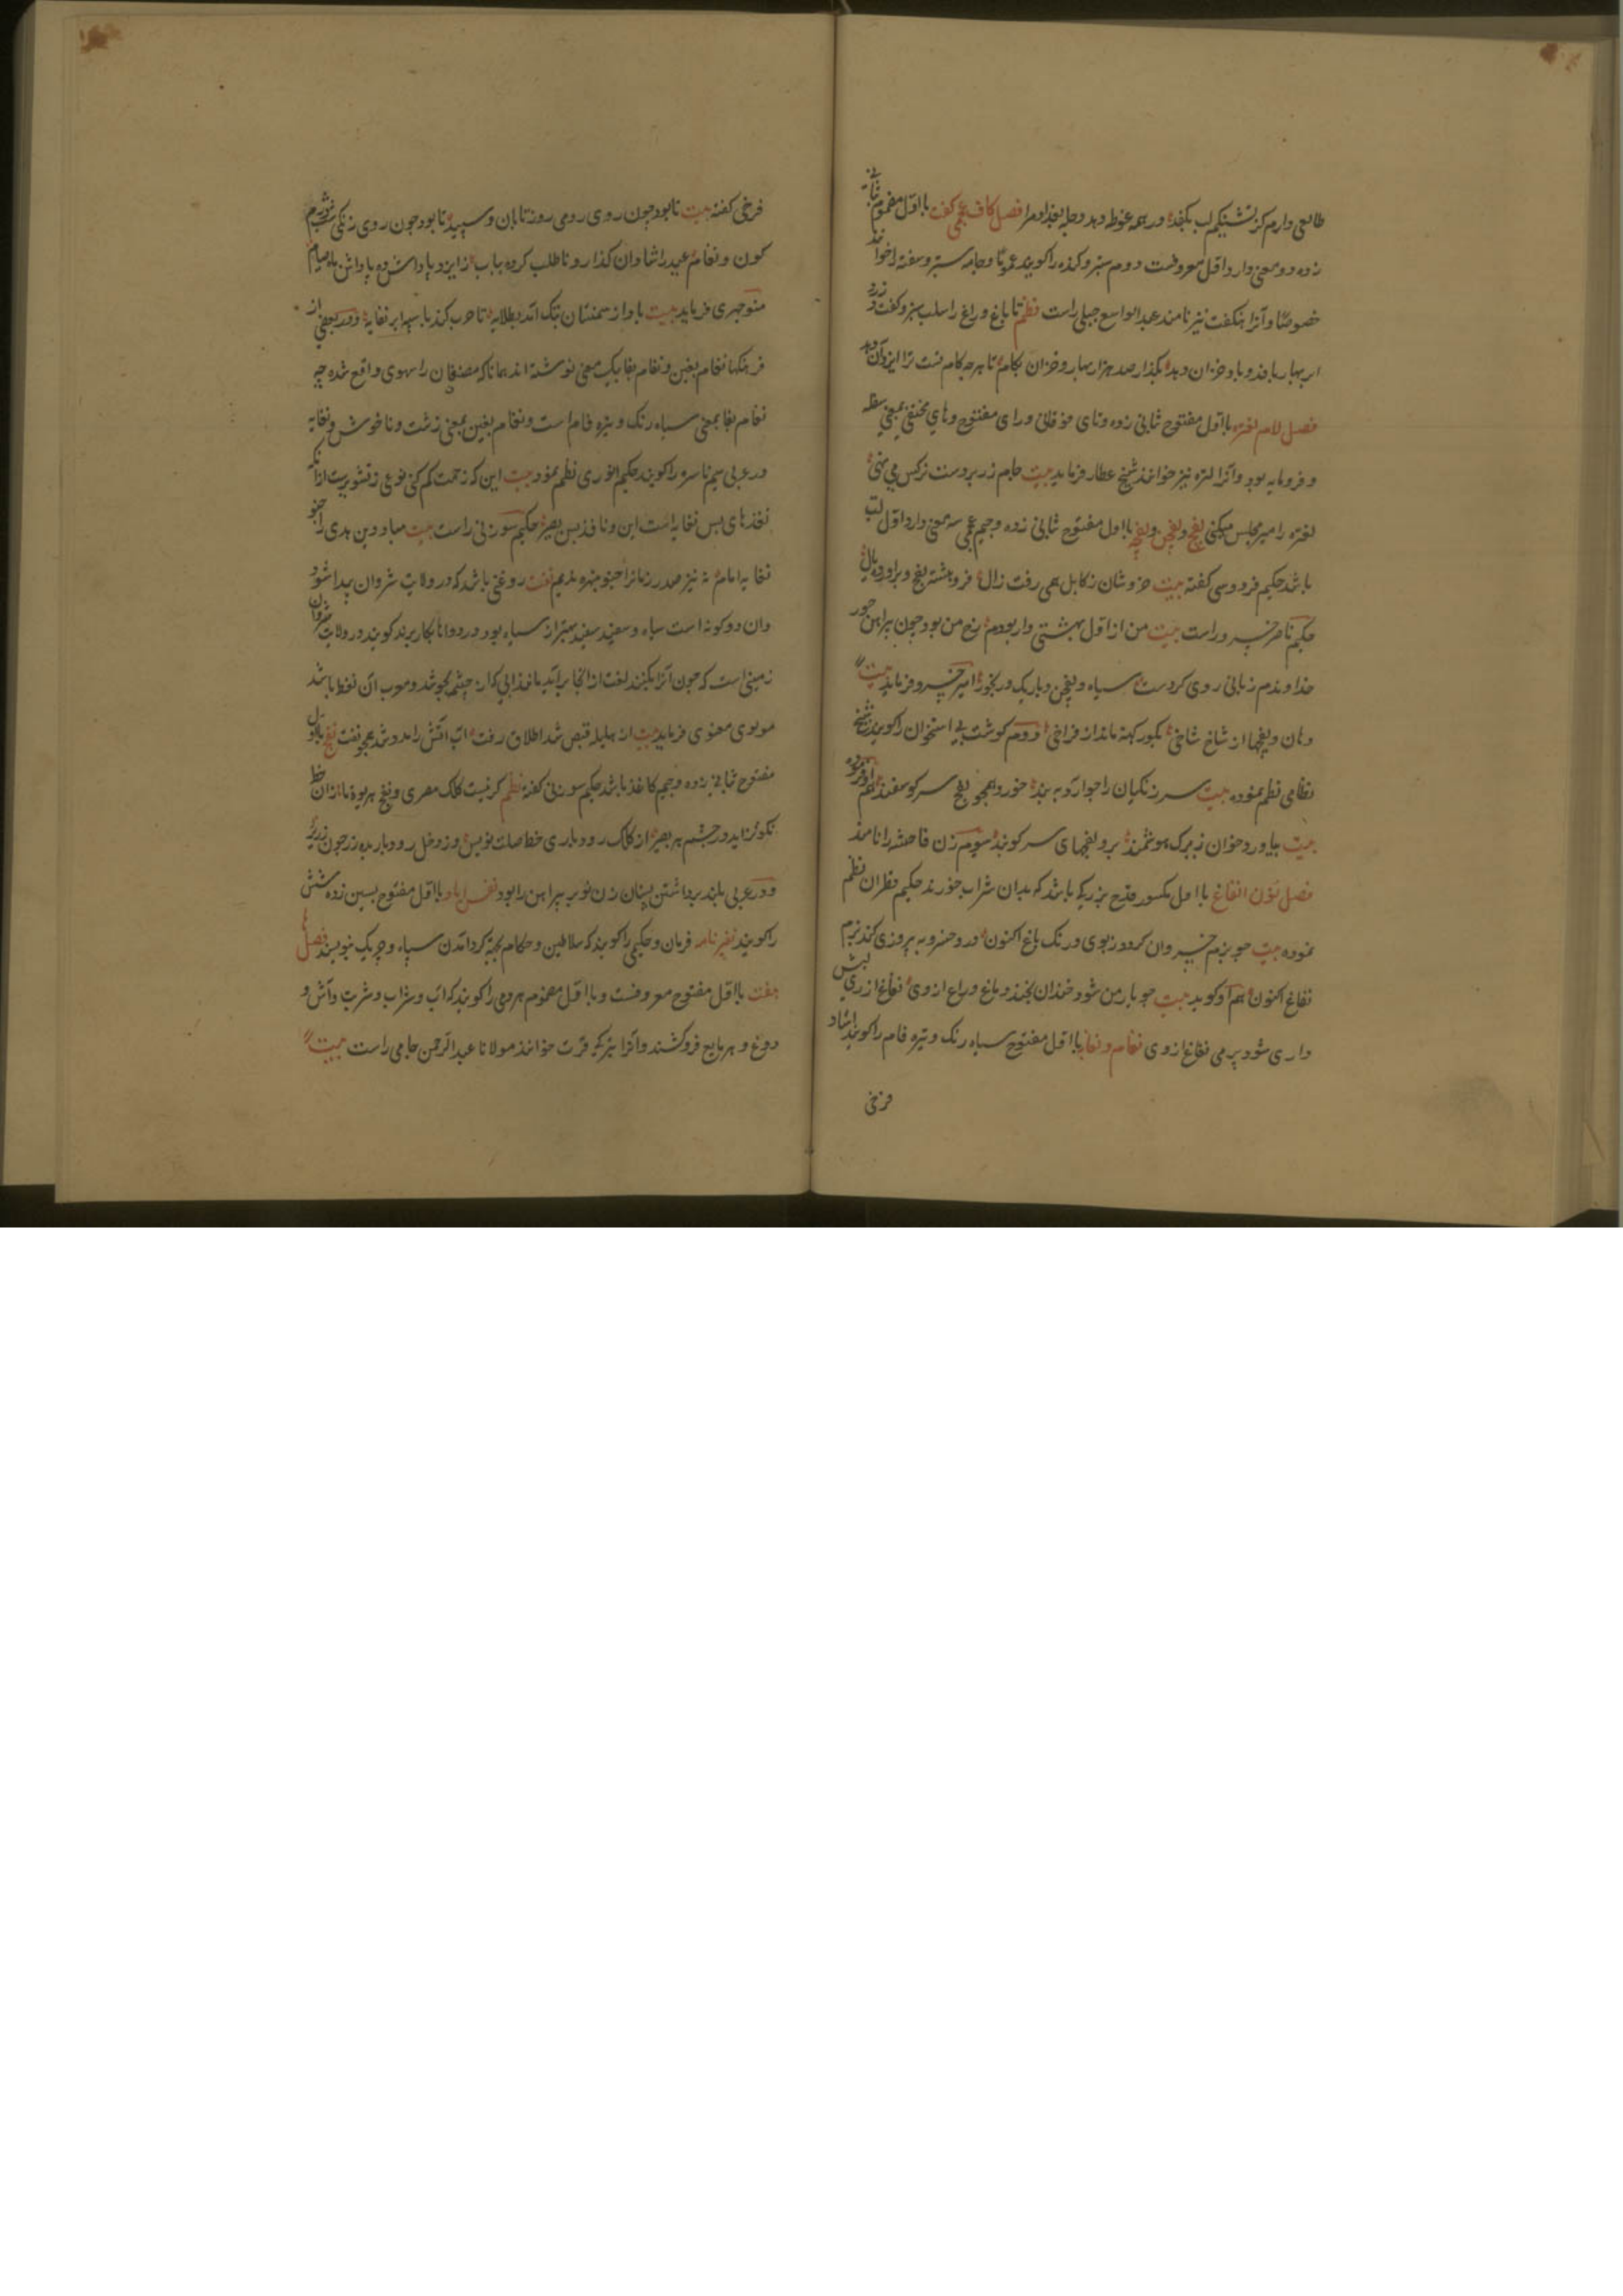 طالعی دارم کز تشنکم لب بکفد در همه غوطه دهد دجله بغداد مرا فصل کاف عجمی کفت با اول مضموم ثانی
زده دو معنی دارد اول معروفست دوم ستبر و کنده را کویند عموما و جامه ستبر و سفته را خوانند
خصوصا و آنرا هنکفت نیز نامند عبدالواسع جبلی راست نظم تا باغ و راغ را سلب سبز و کفت زرد
ابر بهار بافد و باد خزان دهد بکذار صد هزار بهار و خزان بکام تا هرچه کام تست ترا ایزد آن دهد
فصل لام لفتره با اول مفتوح ثانی زده و تای فوقانی و رای مفتوح و های مختفی بمعنی سفله
و فرومایه بود و آنرا لتره نیز خوانند شیخ عطار فرماید بیت جام زر بر دست نرکس می نهی
لفتره را میر مجلس میکنی لفج و لفجن و لفچه با اول مفتوح ثانی زده و جیم عجمی سه معنی دارد اول لب
باشد حکیم فردوسی کفته بیت خروشان ز کابل همی رفت زال فروهشته لفج و برآورده یال
حکیم ناصر خسرو راست بیت من از اول بهشتی وار بودم رخ من بود چون پیراهن حور
خداوندم زبانی روی کردست سیاه و لفچن و باریک و رنجور امیر خسرو فرماید بیت
دهان و لفچها از شاخ شاخی بکور کهنه ماند از فراخی دوم کوشت بی استخوان را کویند شیخ
نظامی نظم نموده بیت سر زنکیان را جو آرد به بند خورد همچو لفج سر کوسفند هم او فرموده
بیت بیاورد خوان زیرک هوشمند برو لفچهای سر کوسفند سوم زن فاحشه را نامند
فصل نون انفاغ با اول مکسور قدح بزرکه باشد که بدان شراب خورند حکیم قطران نظم
نموده بیت چو بزم خسروان کردد ز بوی و رنک باغ اکنون درو خسرو به پیروزی کند بزم
نفاغ اکنون هم او کوید بیت چو یار من شود خندان بخندد باغ و راغ از وی نفاغ از ری پیش
داری شود پر می نفاغ از وی نفام و نفایه با اول مفتوح سیاه رنک و تیره فام را کویند استاد
فرخی
فرخی کفته بیت تا بود چون روی رومی روز تابان و سپید تا بود چون روی زنکی شب
کون و نفام عید را شادان کذار و تا طلب کرده بیاب از ایزد پاداش ده پاداش ماه صیام
منوچهری فرماید بیت با واز تنک آمد بطلایه تا حرب کند با سپه ابر نفایه و در بعضی از
فرهنکها نغام بغین و نفام بفا بیک معنی نوشته اند همانا که مصنفان را سهوی واقع شده چه
نفام بفا بمعنی سیاه رنک و تیره فام است و نغام بغین بمعنی زشت و ناخوش و نفایه
در عربی سیم ناسره را کویند حکیم انوری نظم نمود بیت این که زحمت کم کنی نوعی ز تشویرست از آنکه
نقدهای بس نفایه است این و ناقد بس بصیر حکیم سوزنی راست بیت مبادا دین بدی را
نفایه امام نه نیز صدر زمانرا نفت روغنی باشد که در ولایت شروان پیدا شود
و آن دو کونه است سیاه و سفید سفید بهتر از سیاه بود در دواها بکار برند کویند در ولایت شروان
زمینی است که چون آنرا بکنند نفت از انجا برآید مانند آبی که از چشمه بجوشد و معرب آن نفط باشد
مولوی معنوی فرماید بیت از هلیله قبض شد اطلاق رفت آب آتش را مدد شد همچو نفت نفج با اول
مفتوح ثانی زده و جیم کاغذ باشد حکیم سوزنی کفته نظم کر نیست کلک مصری و نفج هریوه ماند زان خط
نکو نزاید در چشم هر بصیر از کلک رودباری خط صلت نویس وز دخل رودبار بده زر چون زریر
و در عربی بلند برداشتن پستان زن نو بر پیراهن را بود نفس اباد با اول مفتوح بسین زده شش
را کویند نفیر نامه فرمان و حکمی را کویند که سلاطین و حکام بجهة کرد آمدن سپاه و چریک نویسند فصل ها
هفت با اول مفتوح معروفست و با اول مضموم هر دمی را کویند که آب و شراب و شربت و آش و
دوغ و هر مایع فروکشند و آنرا بتر کی قرت خوانند مولانا عبد الرحمن جامی راست بیت